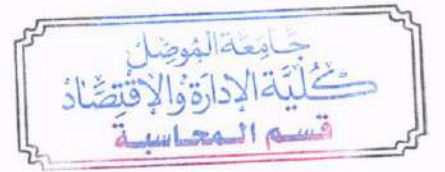 جَامِعَة المُوصِل
كُلِيَّة الإدارَة وَالإقْتِصَاد
قسم المحاسبة